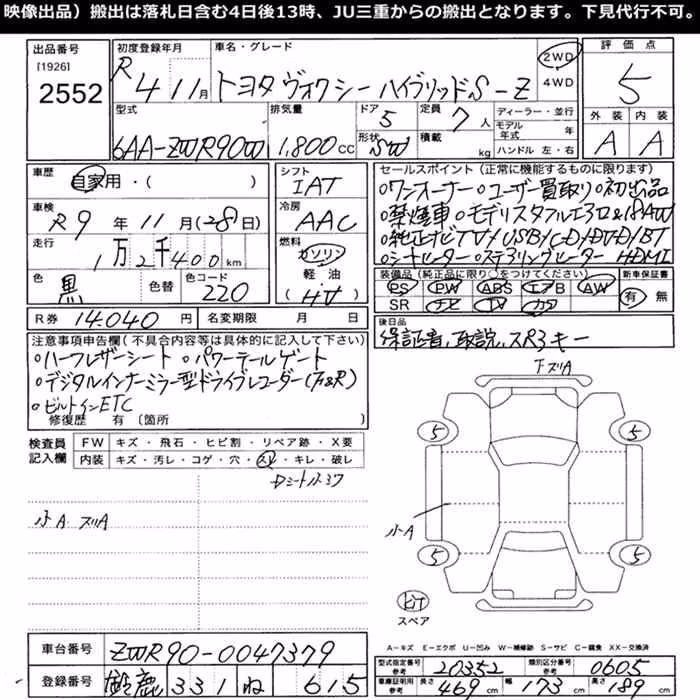 映像出品）搬出は落札日含む4日後13時、JU三重からの搬出となります。下見代行不可。
出品番号 [1926] 2552
初度登録年月 R4 11月
車名・グレード トヨタ ヴォクシー ハイブリッドS-Z
2WD 4WD
評価点 5
外装 A 内装 A
型式 6AA-ZWR90W
排気量 1,800cc
ドア 5 形状 SW
定員 7人 積載 kg
ディーラー・並行 モデル年式 年 ハンドル 左・右
車歴 自家用・( )
シフト IAT
車検 R9年11月(28日)
冷房 AAC
走行 1万2千400km
燃料 ガソリン 軽油 (HV)
色 黒 色替 色コード 220
セールスポイント（正常に機能するものに限ります）
○ワンオーナー ○ユーザー買取り ○初出品
○禁煙車 ○モデリスタフルエアロ&18AW
○純正ナビTV/USB/CD/DVD/BT
○シートヒーター ○ステアリングヒーター HDMI
装備品（純正品に限り○をつけてください） 新車保証書
PS PW ABS エアB AW 有・無
SR ナビ TV カワ
R券 14,040円 名変期限 月 日
後日品
保証書、取説、スペアキー
注意事項申告欄(不具合内容等は具体的に記入して下さい)
○ハーフレザーシート ○パワーテールゲート
○デジタルインナーミラー型ドライブレコーダー(F&R)
○ビルトインETC
修復歴 有 〔箇所 〕
検査員記入欄 FW キズ・飛石・ヒビ割・リペア跡・X要
内装 キズ・汚レ・コゲ・穴・スレ・キレ・破レ
小A ズリA
下ズリA
5 5
小A
5 5
スペア
A=キズ E=エクボ U=凹み W=補修跡 S=サビ C=腐食 XX=交換済
車台番号 ZWR90-0047379
登録番号 鈴鹿 331 ね 615
型式指定番号 参考 20352 類別区分番号 参考 0605
車庫証明用参考 長さ 469cm 幅 173cm 高さ 189cm